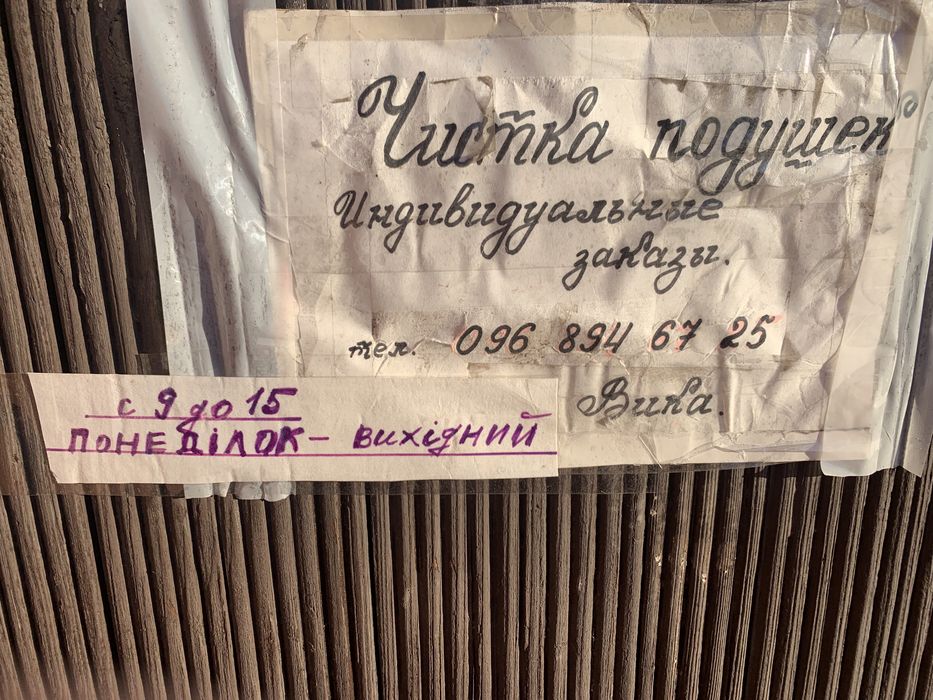 Чистка подушек
Индивидуальные
заказы.
тел. 096 894 67 25
Вика.
с 9 до 15
ПОНЕДІЛОК – вихідний